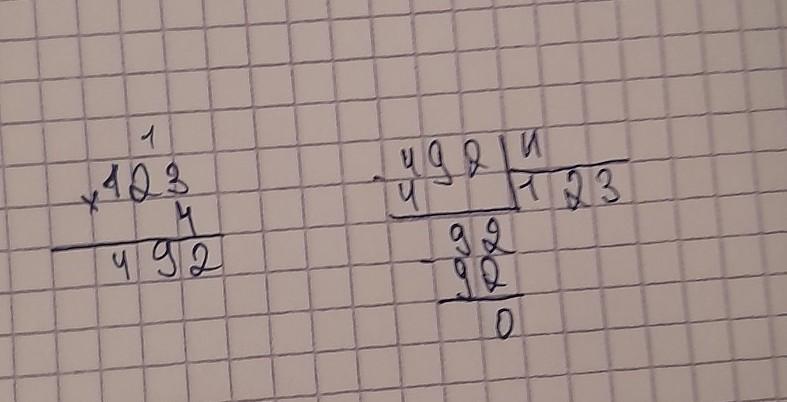 1
×123
4
492
-492|4
4 123
92
-92
0